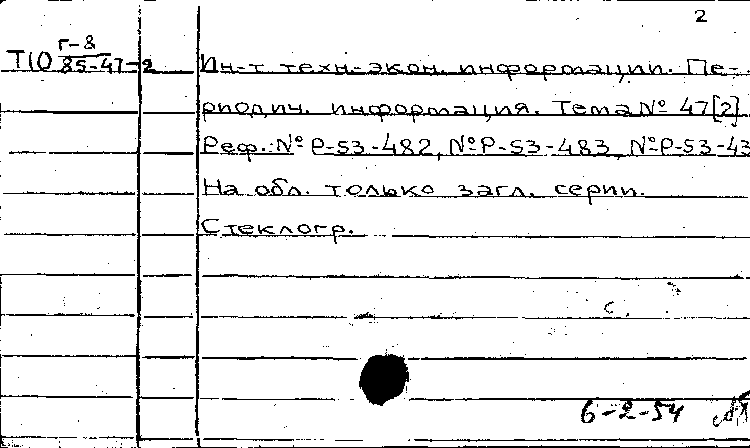 2
Г-8
Т10 85-47-2
Ин-т техн-экон. информации. Пе-
риодич. информация. Тема № 47[2]
Реф.: № Р-53-482, № Р-53-483, № Р-53-43
На обл. только загл. серии.
Стеклогр.
с.
6-2-54